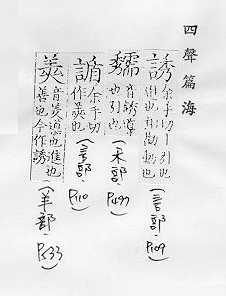 四聲篇海
誘
余手切｜引也
進也相勸動也
（言部）
P.109
䅎
音誘導
也引也
（禾部）
P.497
䛻
余手切
作羑也
（言部）
P.110
羑
音羑進也進也
善也今作誘
（羊部）
P.533